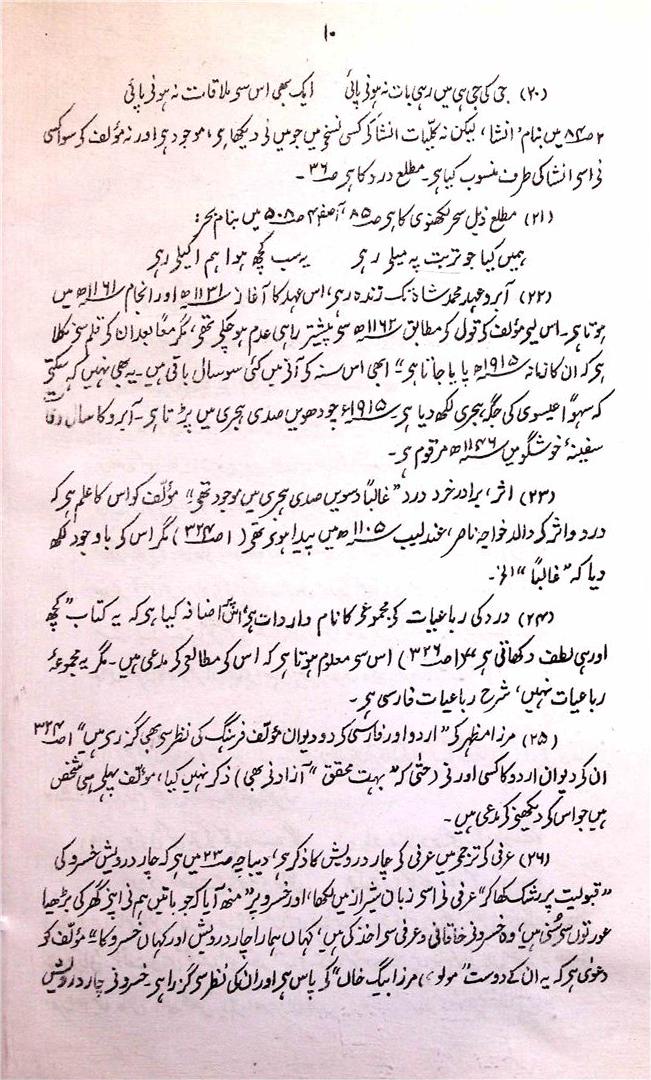 ۱۰
(۲۰) جی کی جی ہی میں رہی بات نہ ہونی پائی ایک بھی اس سے ملاقات نہ ہونی پائی
۲ ص۸۴ میں بنام انشا، لیکن نہ کلیات انشا کے کسی نسخے میں جو میں نے دیکھا ہے، موجود ہے اور نہ مؤلف کے سوا کسی
نے اسے انشا کی طرف منسوب کیا ہے۔ مطلع درد کا ہے ص۳۶۔
(۲۱) مطلع ذیل سحر لکھنوی کا ہے ص۸۵، آصفہ ۴ ص۵۰۸ میں بنام بحر:
ہمیں کیا جو تربت پہ میلے رہے یہ سب کچھ ہوا ہم اکیلے رہے
(۲۲) آبرو عہد محمد شاہ تک زندہ رہے، اس عہد کا آغاز ۱۱۳۱ھ اور انجام ۱۱۶۱ھ میں
ہوتا ہے۔ اس لیے مؤلف کے قول کے مطابق ۱۱۶۲ھ سے پیشتر راہی عدم ہو چکے تھے، مگر معاً بعد ان کے قلم سے نکلا
ہے کہ ان کا زمانہ ۱۹۱۵ھ پایا جاتا ہے“ ابھی اس سنہ کے آنے میں کئی سو سال باقی ہیں۔ یہ بھی نہیں کہ سکتے
کہ سہواً عیسوی کی جگہ ہجری لکھ دیا ہے ۱۹۱۵ء چودھویں صدی ہجری میں پڑتا ہے۔ آبرو کا سال وفات
سفینۂ خوشگو میں ۱۱۴۶ھ مرقوم ہے۔
(۲۳) اثر، برادر خرد درد ”غالباً دسویں صدی ہجری میں موجود تھے“ مؤلف کو اس کا علم ہے کہ
درد و اثر کے والد خواجہ ناصر، عندلیب ۱۱۰۵ھ میں پیدا ہوے تھے (۱ ص۳۲۴) مگر اس کے باوجود لکھ
دیا کہ ”غالباً“ الخ۔
(۲۴) درد کی رباعیات کے مجموعے کا نام واردات ہے، اس پر اضافہ کیا ہے کہ یہ کتاب ”کچھ
اور ہی لطف دکھاتی ہے“ (۱ ص۳۲۶) اس سے معلوم ہوتا ہے کہ اس کے مطالعے کے مدعی ہیں۔ مگر یہ مجموعۂ
رباعیات نہیں، شرح رباعیات فارسی ہے۔
(۲۵) مرزا مظہر کے ”اردو اور فارسی کے دو دیوان مؤلف فرہنگ کی نظر سے بھی گزرے ہیں“ ۱ ص۳۲۴
ان کے دیوان اردو کا کسی اور نے (حتیٰ کہ ”بہت محقق“ آزاد نے بھی) ذکر نہیں کیا، مؤلف پہلے ہی شخص
ہیں جو اس کے دیکھنے کے مدعی ہیں۔
(۲۶) عرفی کے ترجمے میں عرفی کے چار درویش کا ذکر ہے، دیباچہ ص۲۳ میں ہے کہ چار درویش خسرو کی
”قبولیت پر رشک کھا کر“ عرفی نے اسے زبان شیراز میں لکھا، اور خسرو پر ”منھ آیا کہ جو باتیں ہم نے اپنے گھر کی بڑھیا
عورتوں سے سنی ہیں، وہ خسرو نے خاقانی و عرفی سے اخذ کی ہیں، کہاں ہمارا چار درویش اور کہاں خسرو کا“ مؤلف کو
دعویٰ ہے کہ یہ ان کے دوست ”مولوی مرزا بیگ خاں“ کے پاس ہے اور ان کی نظر سے گزرا ہے۔ خسرو نے چار درویش